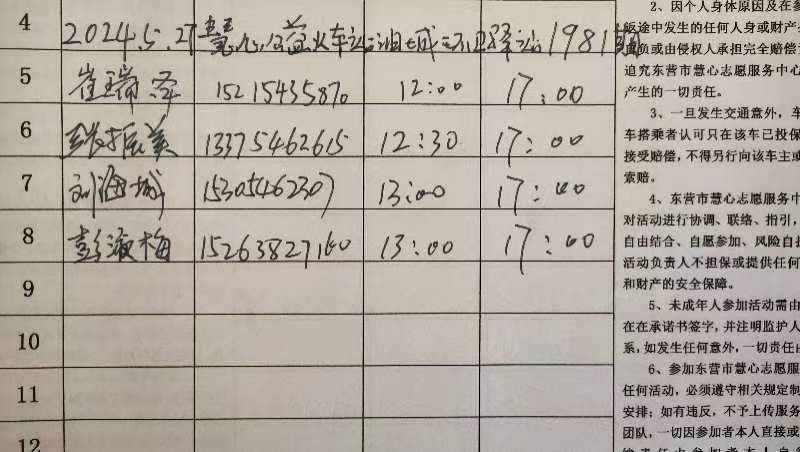 4
2024.5.27慧心公益火车站油城 驿站1981期
5 崔瑞泽 15215435870 12:00 17:00
6 张振美 13375462615 12:30 17:00
7 刘海城 15305462307 13:00 17:00
8 彭淑梅 15263827160 13:00 17:00
9
10
11
12
2、因个人身体原因及在参
返途中发生的任何人身或财产
负或由侵权人承担完全赔偿
追究东营市慧心志愿服务中心
产生的一切责任。
3、一旦发生交通意外，车
车搭乘者认可只在该车已投保
接受赔偿，不得另行向该车主或
索赔。
4、东营市慧心志愿服务中
对活动进行协调、联络、指引，
自由结合、自愿参加、风险自担
活动负责人不担保或提供任何
和财产的安全保障。
5、未成年人参加活动需由
在在承诺书签字，并注明监护人
系，如发生任何意外，一切责任由
6、参加东营市慧心志愿服
任何活动，必须遵守相关规定制
安排；如有违反，不予上传服务
团队，一切因参加者本人直接或